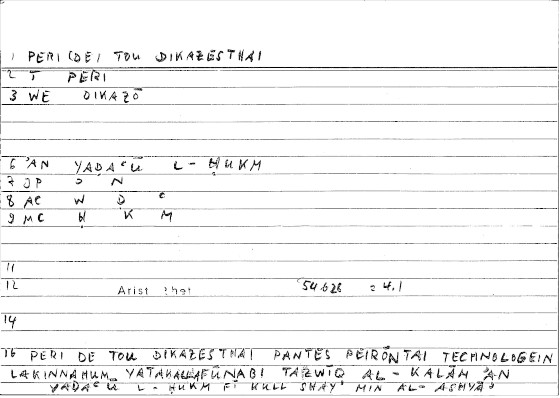 1 PERI (DE) TOU DIKAZESTHAI
2 T PERI
3 WE DIKAZŌ
6 ʾAN YAḌAʿŪ L-ḤUKM
7 OP N
8 AC W Ḍ ʿ
9 MC Ḥ K M
11
12 Arist Rhet 54b28 = 4.1
14
16 PERI DE TOU DIKAZESTHAI PANTES PEIRŌNTAI TECHNOLOGEIN
LAKINNAHUM YATAKALLAFŪNA BI TAZWĪQ AL-KALĀM ʾAN
YAḌAʿŪ L-ḤUKM FĪ KULL SHAYʾ MIN AL-ASHYĀʾ